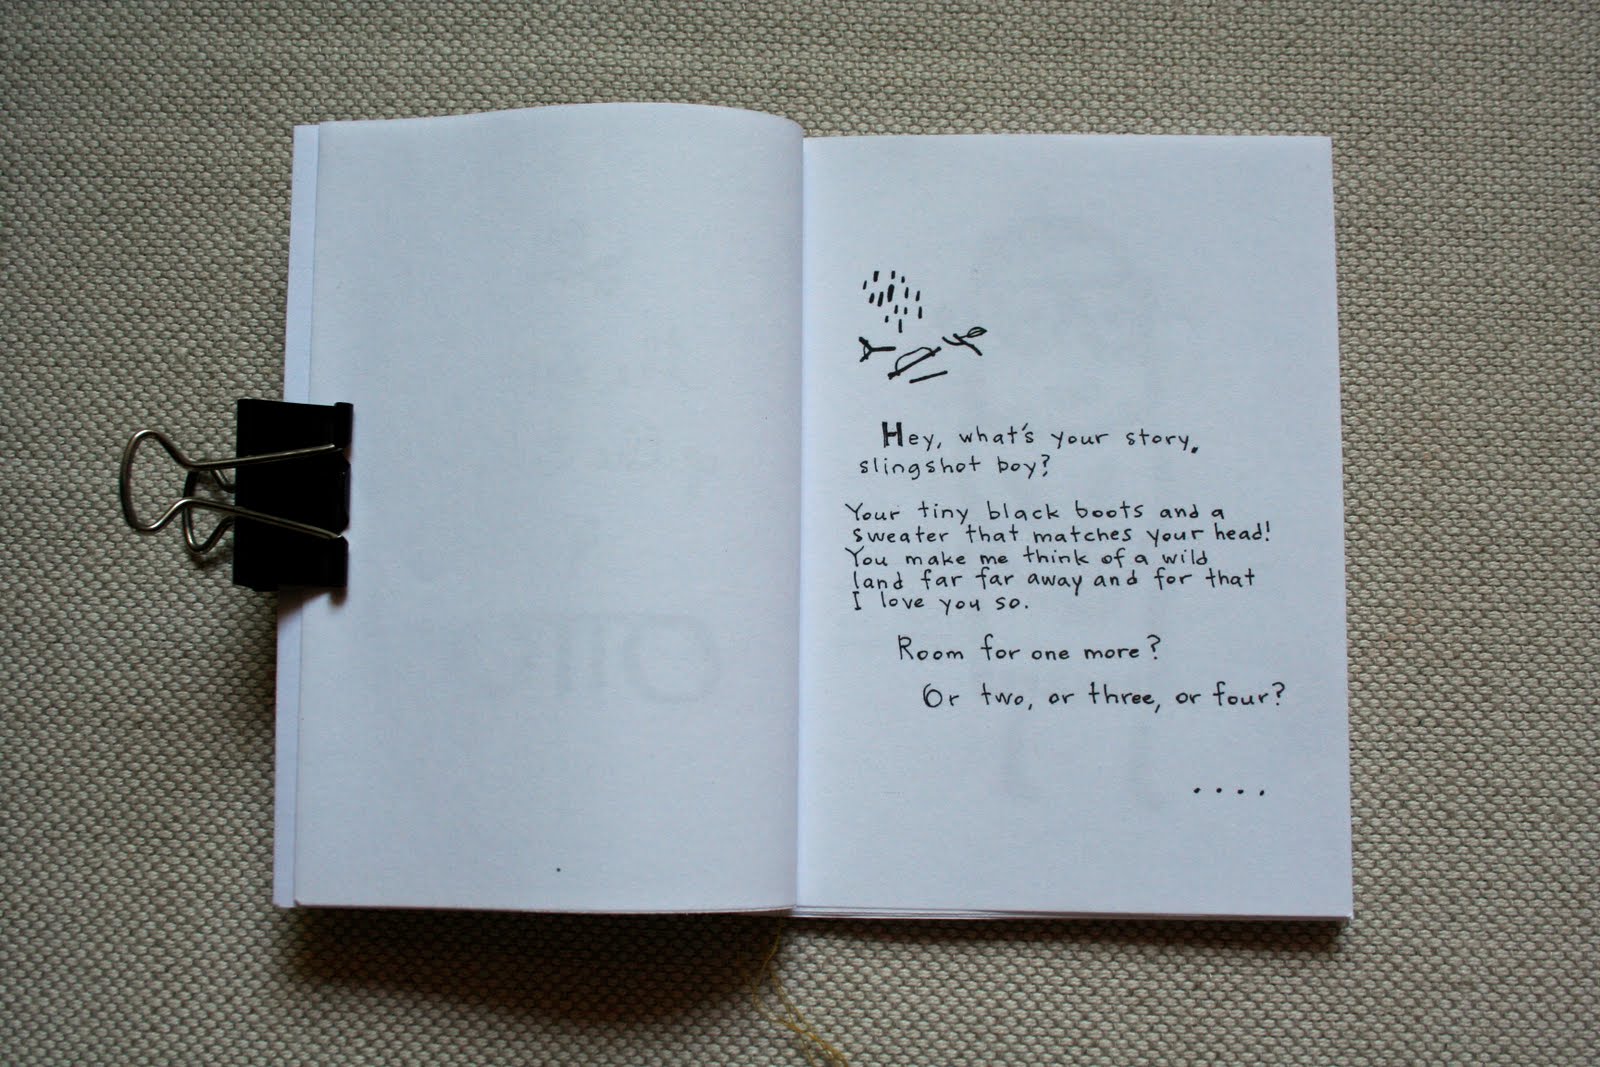 Hey, what's your story,
slingshot boy?
Your tiny black boots and a
sweater that matches your head!
You make me think of a wild
land far far away and for that
I love you so.
Room for one more?
Or two, or three, or four?
....